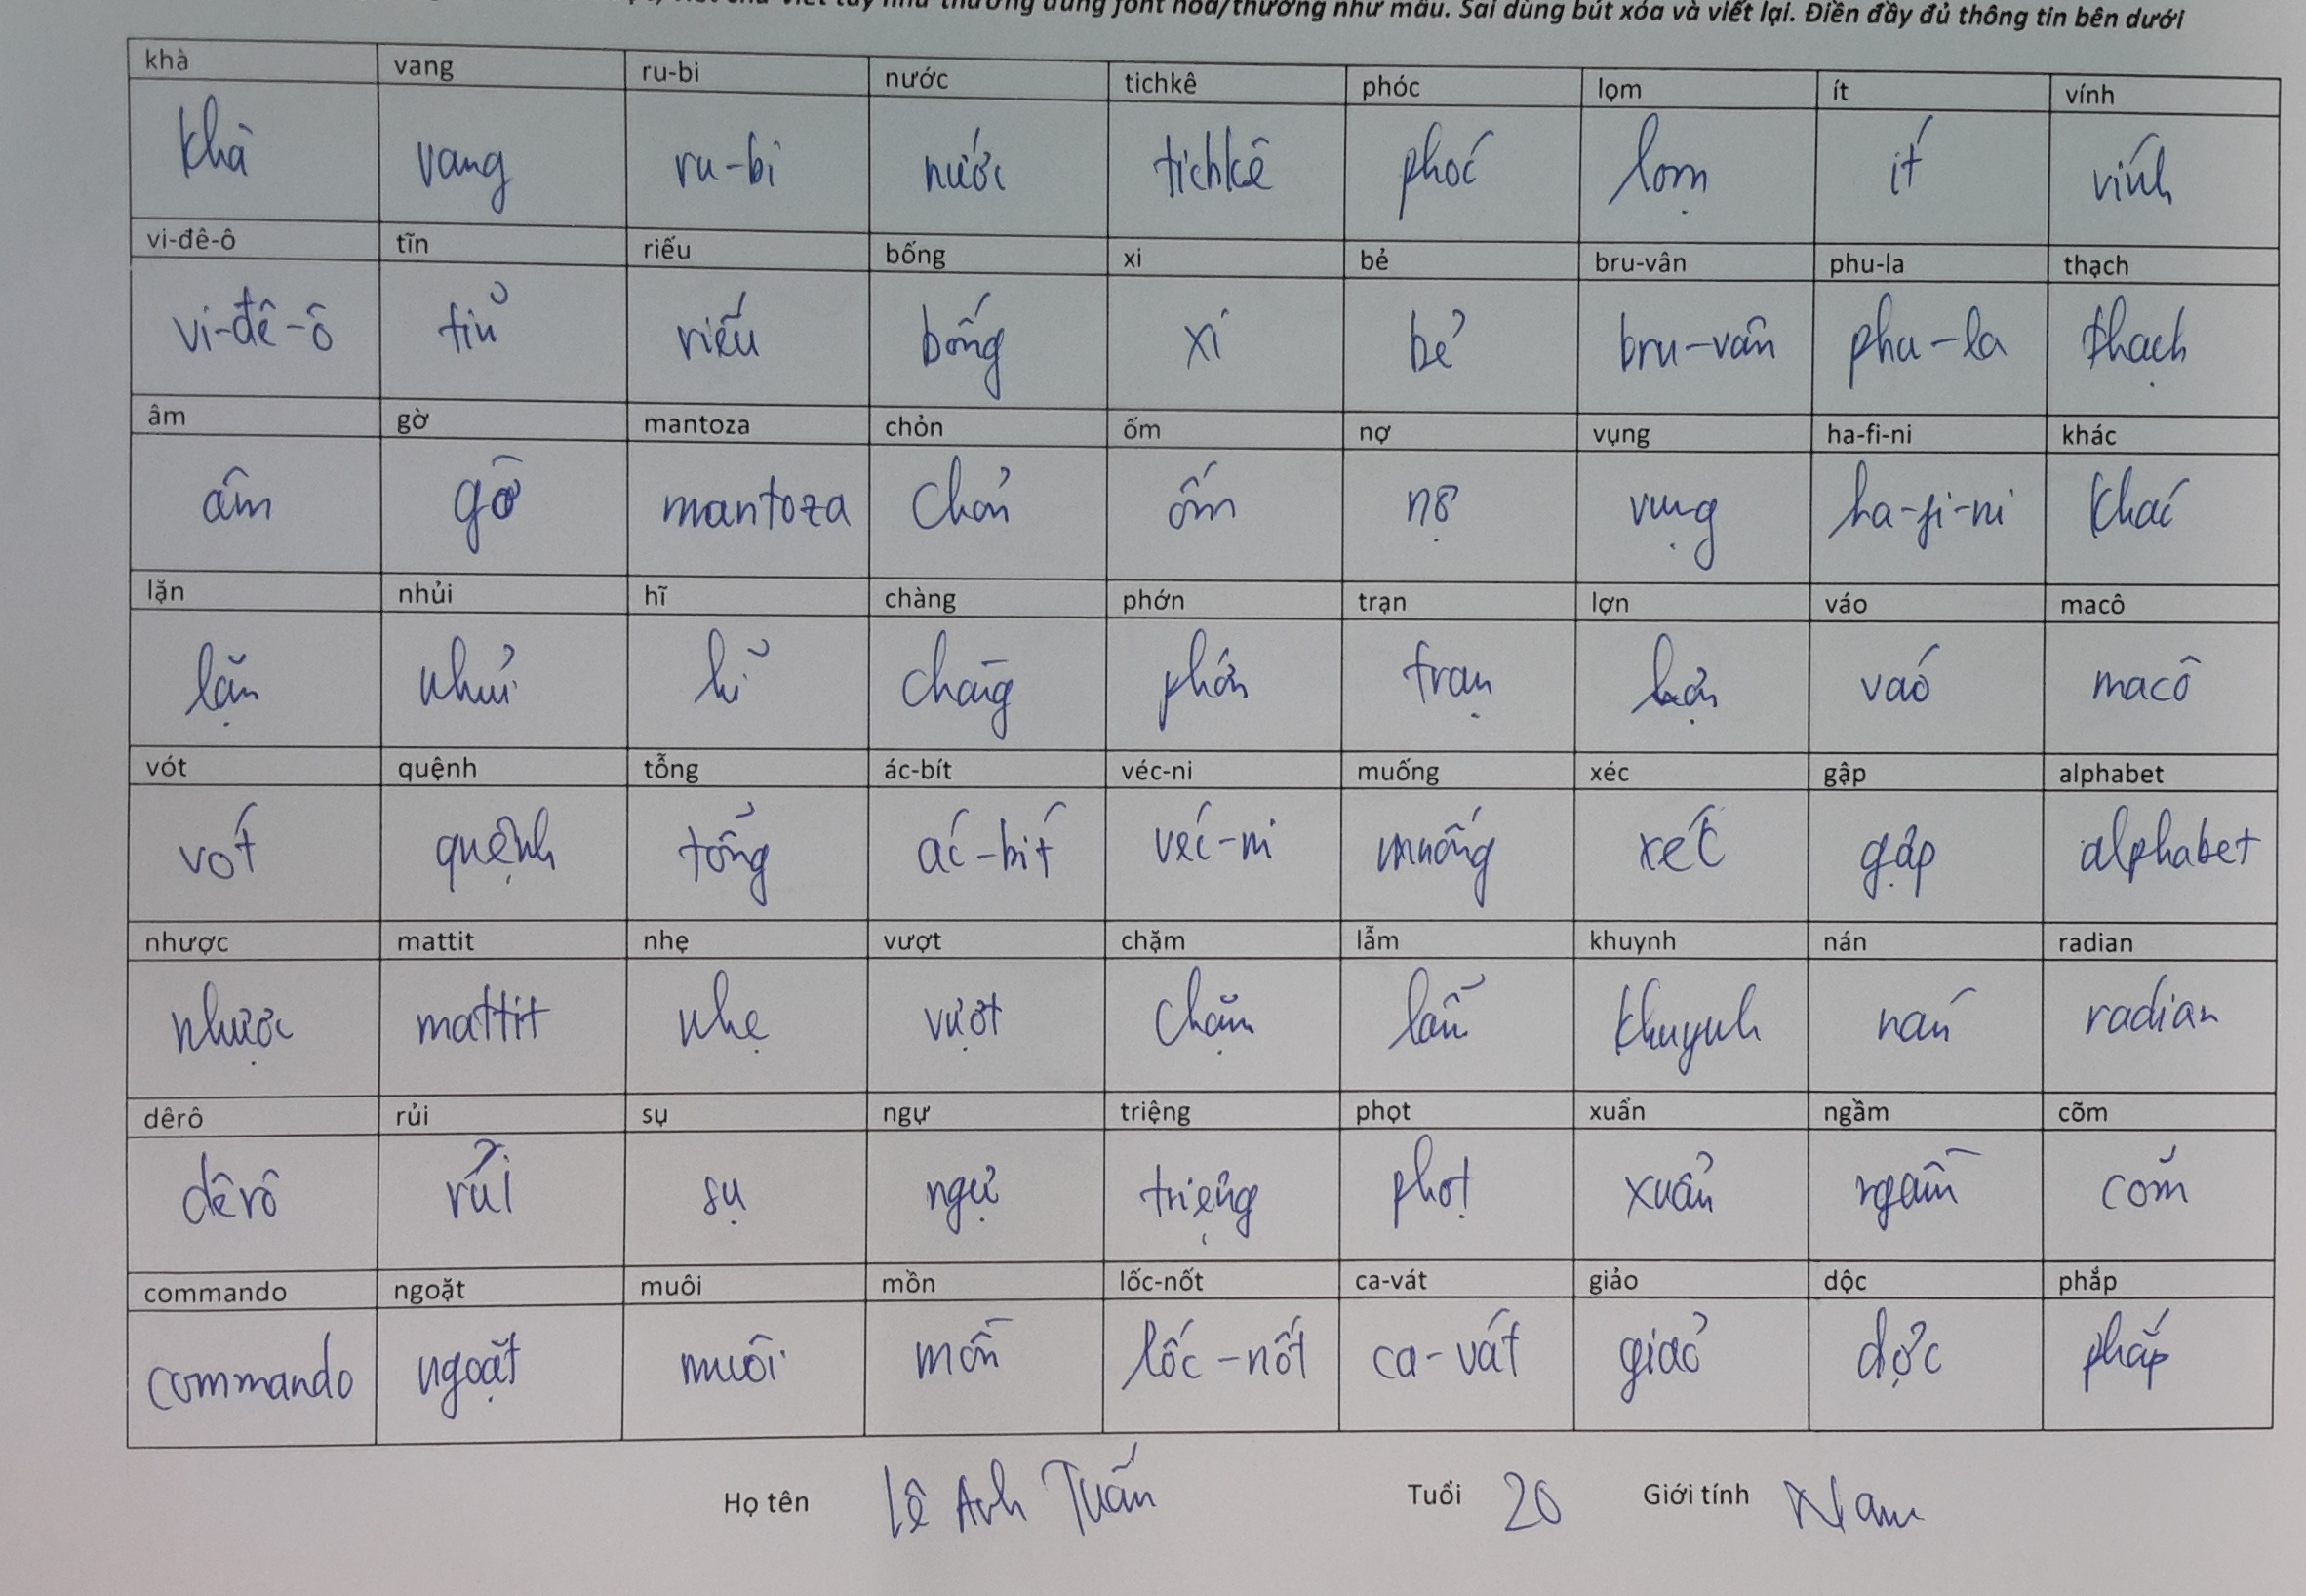 thường dùng font hoa/thường như mẫu. Sai dùng bút xóa và viết lại. Điền đầy đủ thông tin bên dưới
khà vang ru-bi nước tichkê phóc lọm ít vính
khà vang ru-bi nước tichkê phóc lọm ít vính
vi-đê-ô tĩn riếu bống xi bẻ bru-vân phu-la thạch
vi-đê-ô tĩn riếu bống xi bẻ bru-vân phu-la thạch
âm gờ mantoza chỏn ốm nợ vụng ha-fi-ni khác
âm gờ mantoza chỏn ốm nợ vụng ha-fi-ni khác
lặn nhủi hĩ chàng phớn trạn lợn váo macô
lặn nhủi hĩ chàng phớn trạn lợn váo macô
vót quệnh tỗng ác-bít véc-ni muống xéc gập alphabet
vót quệnh tỗng ác-bít véc-ni muống xéc gập alphabet
nhược mattit nhẹ vượt chặm lẫm khuynh nán radian
nhược mattit nhẹ vượt chặm lẫm khuynh nán radian
dêrô rủi sụ ngự triệng phọt xuẩn ngầm cõm
dêrô rủi sụ ngự triệng phọt xuẩn ngầm cõm
commando ngoặt muôi mồn lốc-nốt ca-vát giảo dộc phắp
commando ngoặt muôi mồn lốc-nốt ca-vát giảo dộc phắp
Họ tên Lê Anh Tuấn Tuổi 20 Giới tính Nam